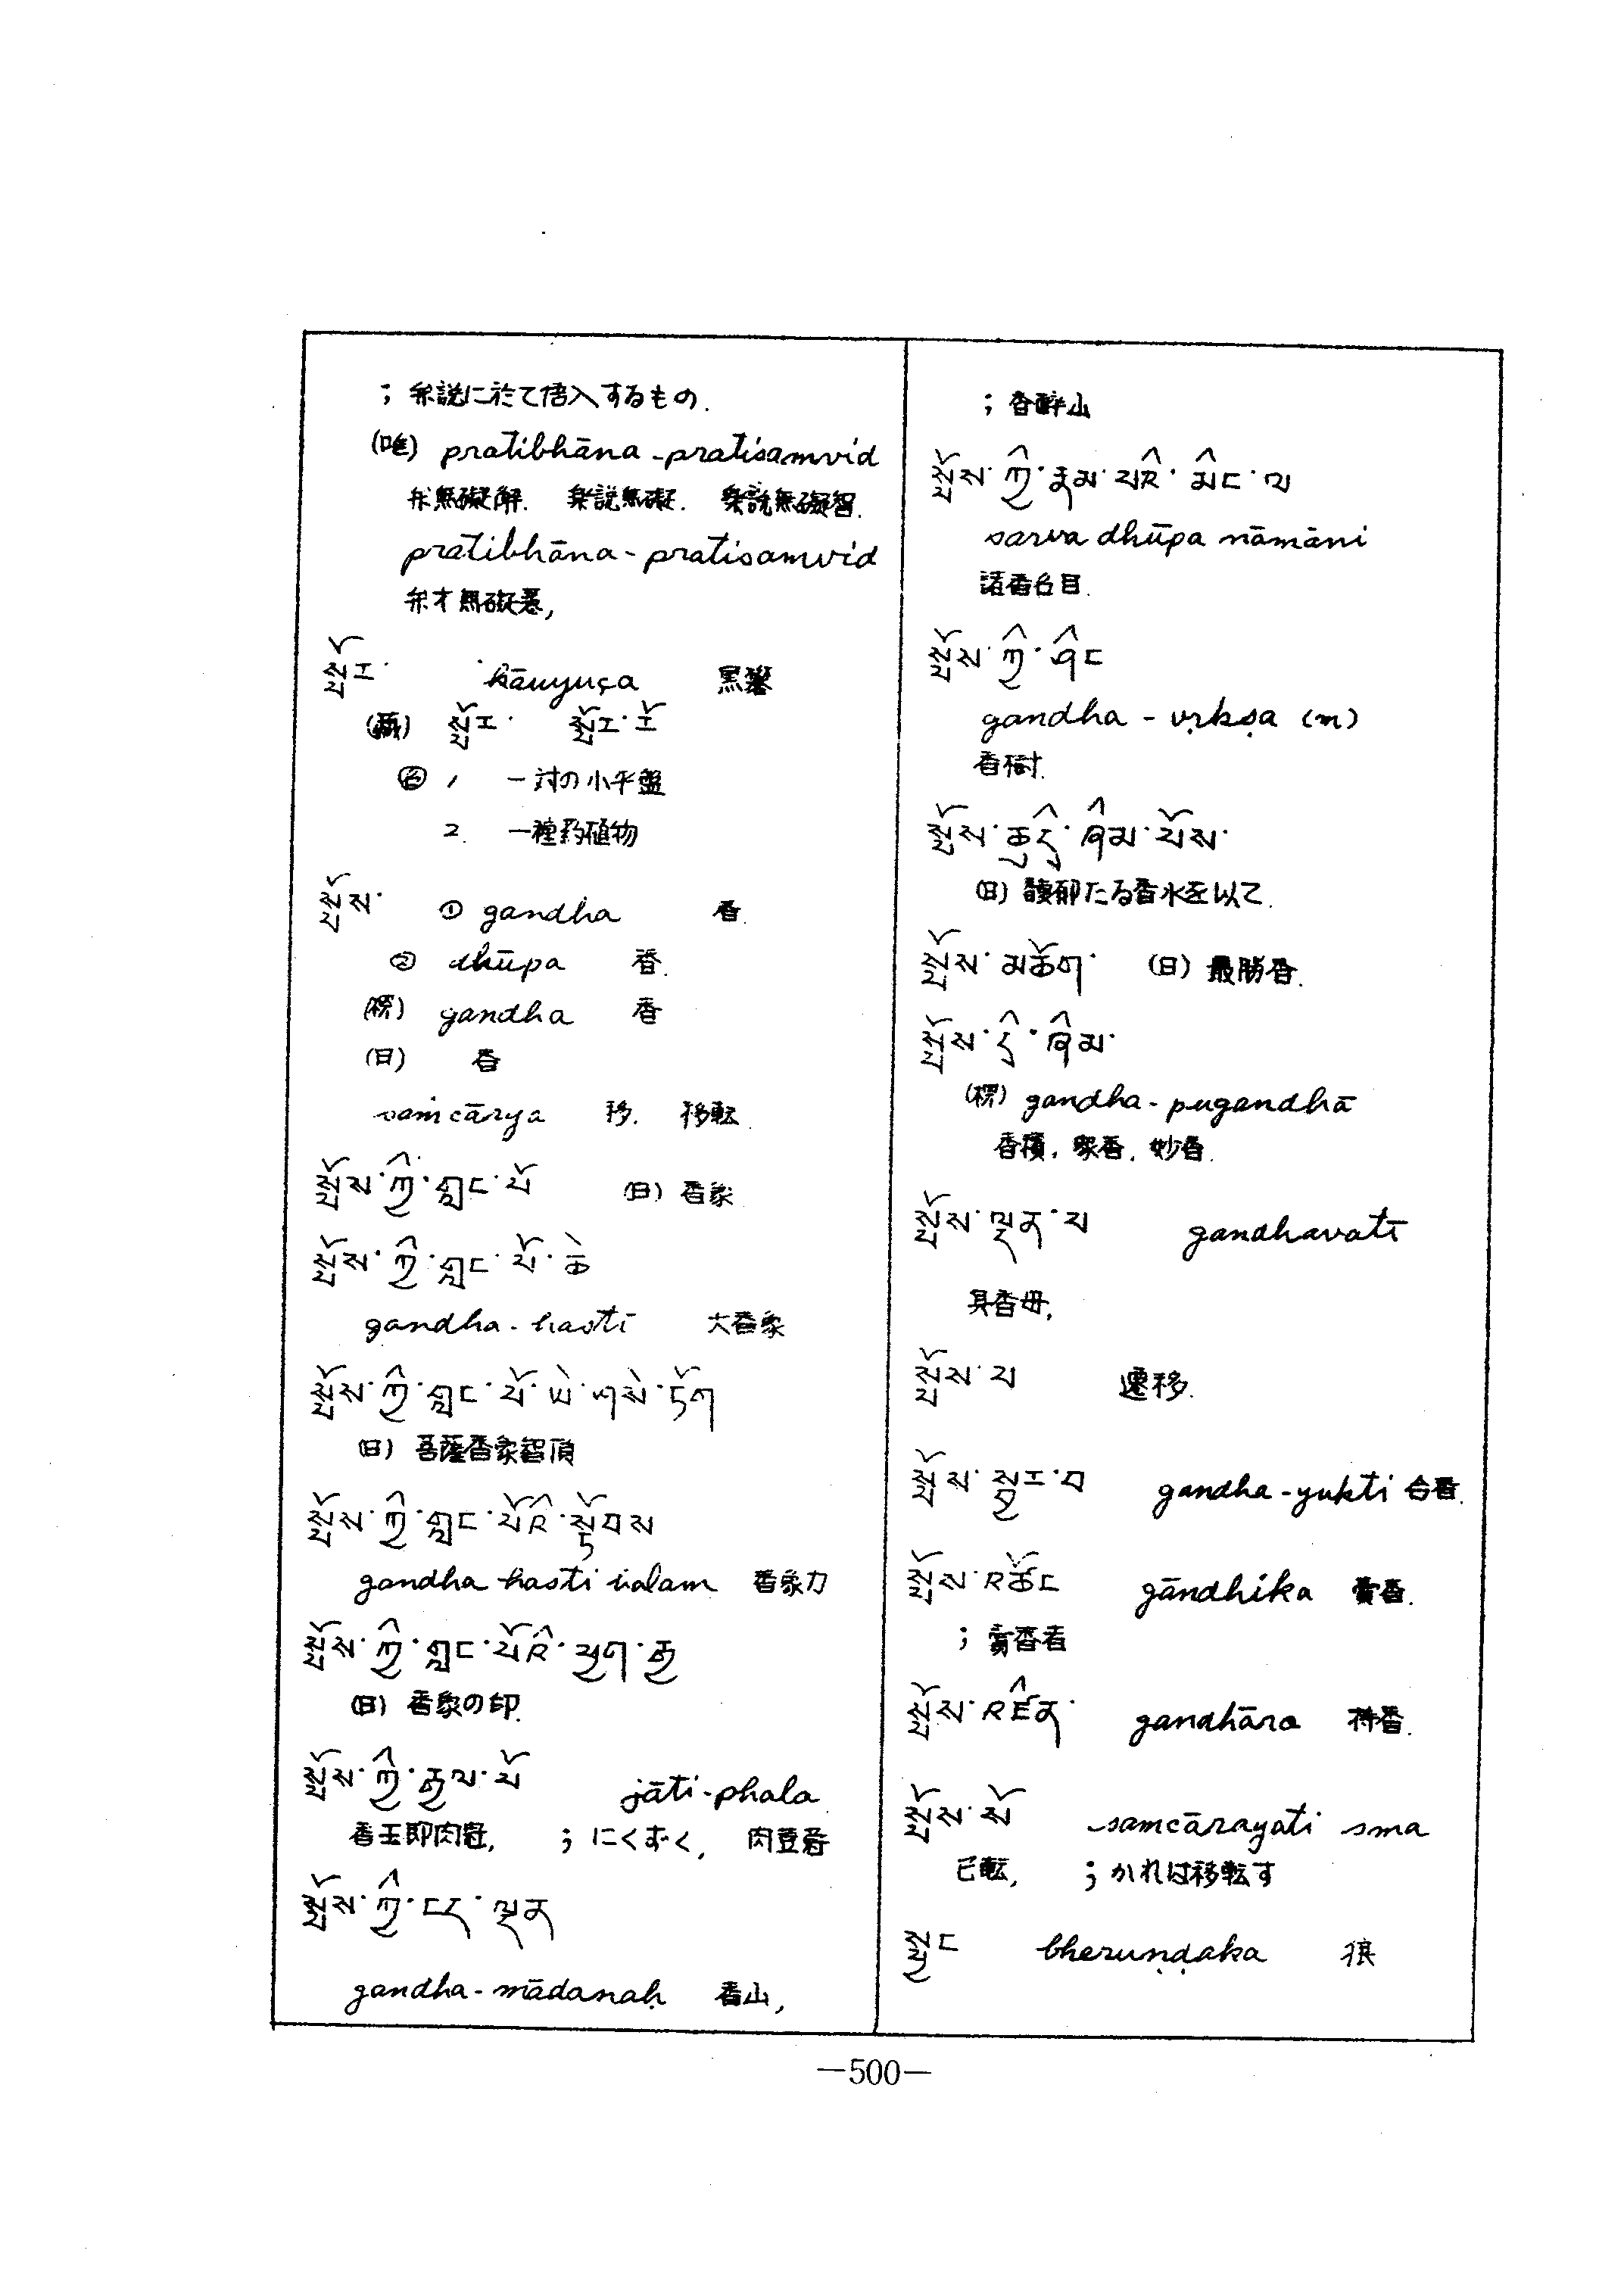 ; 弁説に於て悟入するもの.
(唯) pratibhāna-pratisamvid
弁無礙解. 楽説無礙. 楽説無礙智.
pratibhāna-pratisamvid
弁才無礙慧,
སྤོང་
(蔵)
名 1 一対の小平盤
2. 一種药植物
སྤོས་ ① gandha 香.
② dhūpa 香.
(標) gandha 香
(日) 香
saṁcārya 移. 移転.
སྤོས་ཀྱི་གླང་པོ (日) 香象
སྤོས་ཀྱི་གླང་པོ་ཆེ
gandha-hasti 大香象
སྤོས་ཀྱི་གླང་པོ་ཡེ་ཤེས་ཏོག
(日) 菩薩香象智頂
སྤོས་ཀྱི་གླང་པོའི་སྟོབས
gandha hasti balam 香象力
སྤོས་ཀྱི་གླང་པོའི་ཕྱག་རྒྱ
(日) 香象の印.
སྤོས་ཀྱི་རྒྱལ་པོ jāti-phala
香王即肉冠, ; にくずく, 肉豆蒄
སྤོས་ཀྱི་ངད་ལྡན
gandha-mādanaḥ 香山,
; 香酔山
སྤོས་ཀྱི་རྣམ་པའི་མིང་ལ
sarva dhūpa nāmāni
諸香名目.
སྤོས་ཀྱི་ཤིང
gandha-vṛkṣa (m)
香樹.
སྤོས་ཆུ་དྲི་ཞིམ་པོས་
(日) 馥郁たる香水を以て.
སྤོས་མཆོག་ (日) 最勝香.
སྤོས་དྲི་ཞིམ་
(標) gandha-pugandhā
香積, 衆香, 妙香.
སྤོས་ལྡན་པ gandhavatī
具香母,
སྤོས་པ 遷移.
སྤོས་སྦྱང་བ gandha-yukti 合香.
སྤོས་འཚོང gāndhika 賣香.
; 賣香者
སྤོས་འཛིན་ gandhāra 持香.
སྤོས་སོ samcārayati sma
已転, ; かれは移転す
སྤྱང bheruṇḍaka 狼
—500—